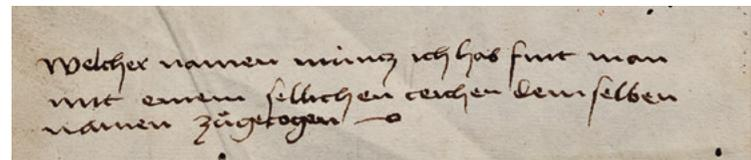 Welcher namen müntz ich hab fint man
mit einem sellichen zeichen dem selben
namen zůgezogen